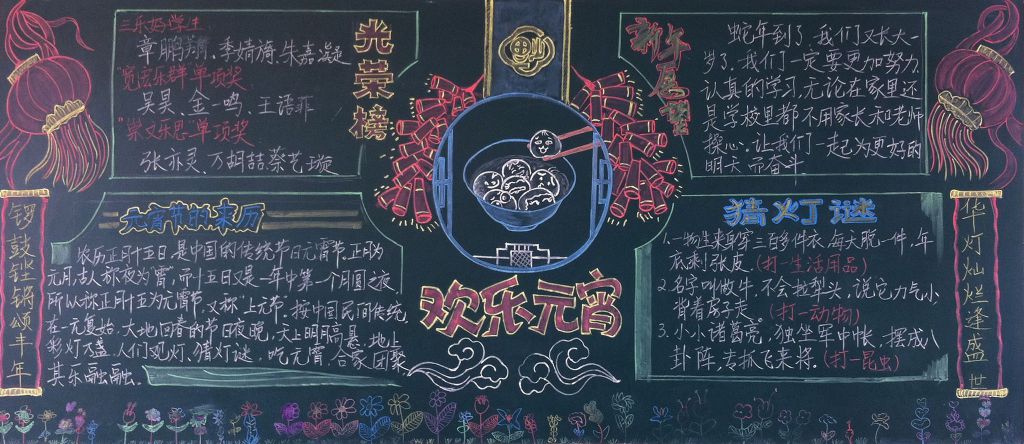 光荣榜
三乐好学生
章鹏翔、李婧旖、朱嘉凝
宽宏乐群单项奖
吴昊、金一鸣、王语菲
崇文乐思单项奖
张亦灵、万胡喆、蔡艺璇
新年展望
蛇年到了,我们又长大一
岁了,我们一定要更加努力,
认真的学习,无论在家里还
是学校里都不用家长和老师
操心,让我们一起为更好的
明天而奋斗.
锣鼓铿锵颂丰年
元宵节的来历
农历正月十五日,是中国的传统节日元宵节,正月为
元月,古人称夜为"宵",而十五日又是一年中第一个月圆之夜
所以称正月十五为元宵节,又称"上元节",按中国民间传统,
在一元复始,大地回春的节日夜晚,天上明月高悬,地上
彩灯万盏,人们观灯、猜灯谜、吃元宵,合家团聚
其乐融融.
欢乐元宵
猜灯谜
1.一物生来身穿三百多件衣,每天脱一件,年
底剩张皮.(打一生活用品)
2.名字叫做牛,不会拉犁头,说它力气小
背着房子走.(打一动物)
3.小小诸葛亮,独坐军中帐,摆成八
卦阵,专抓飞来将.(打一昆虫)
华灯灿烂逢盛世